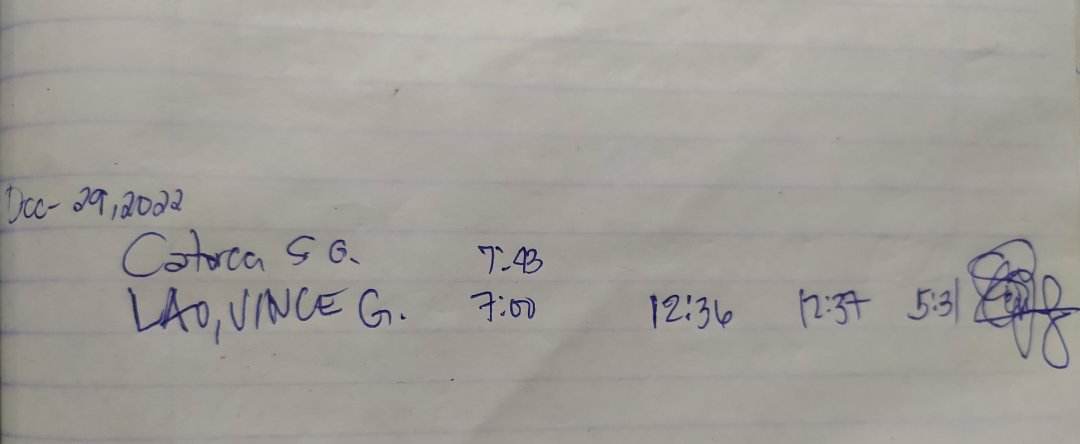 Dec- 29,2022
Catorca S G. 7:43
LAO, VINCE G. 7:00 12:36 12:37 5:31